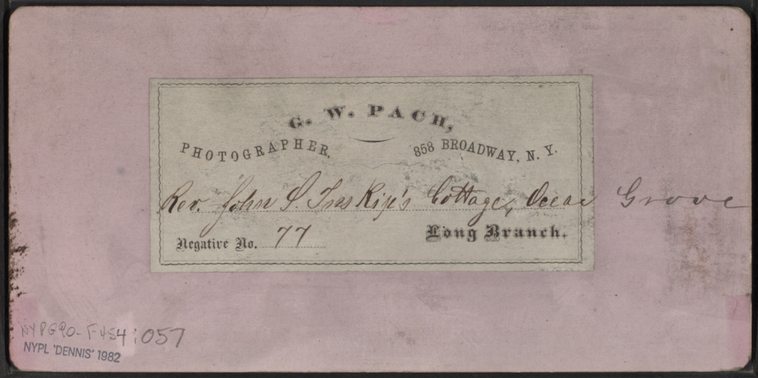 G. W. PACH,
PHOTOGRAPHER, 858 BROADWAY, N. Y.
Rev. John S. InsKip's Cottage, Ocean Grove
Negative No. 77 Long Branch.
NYPG90-F454:057
NYPL "DENNIS" 1982